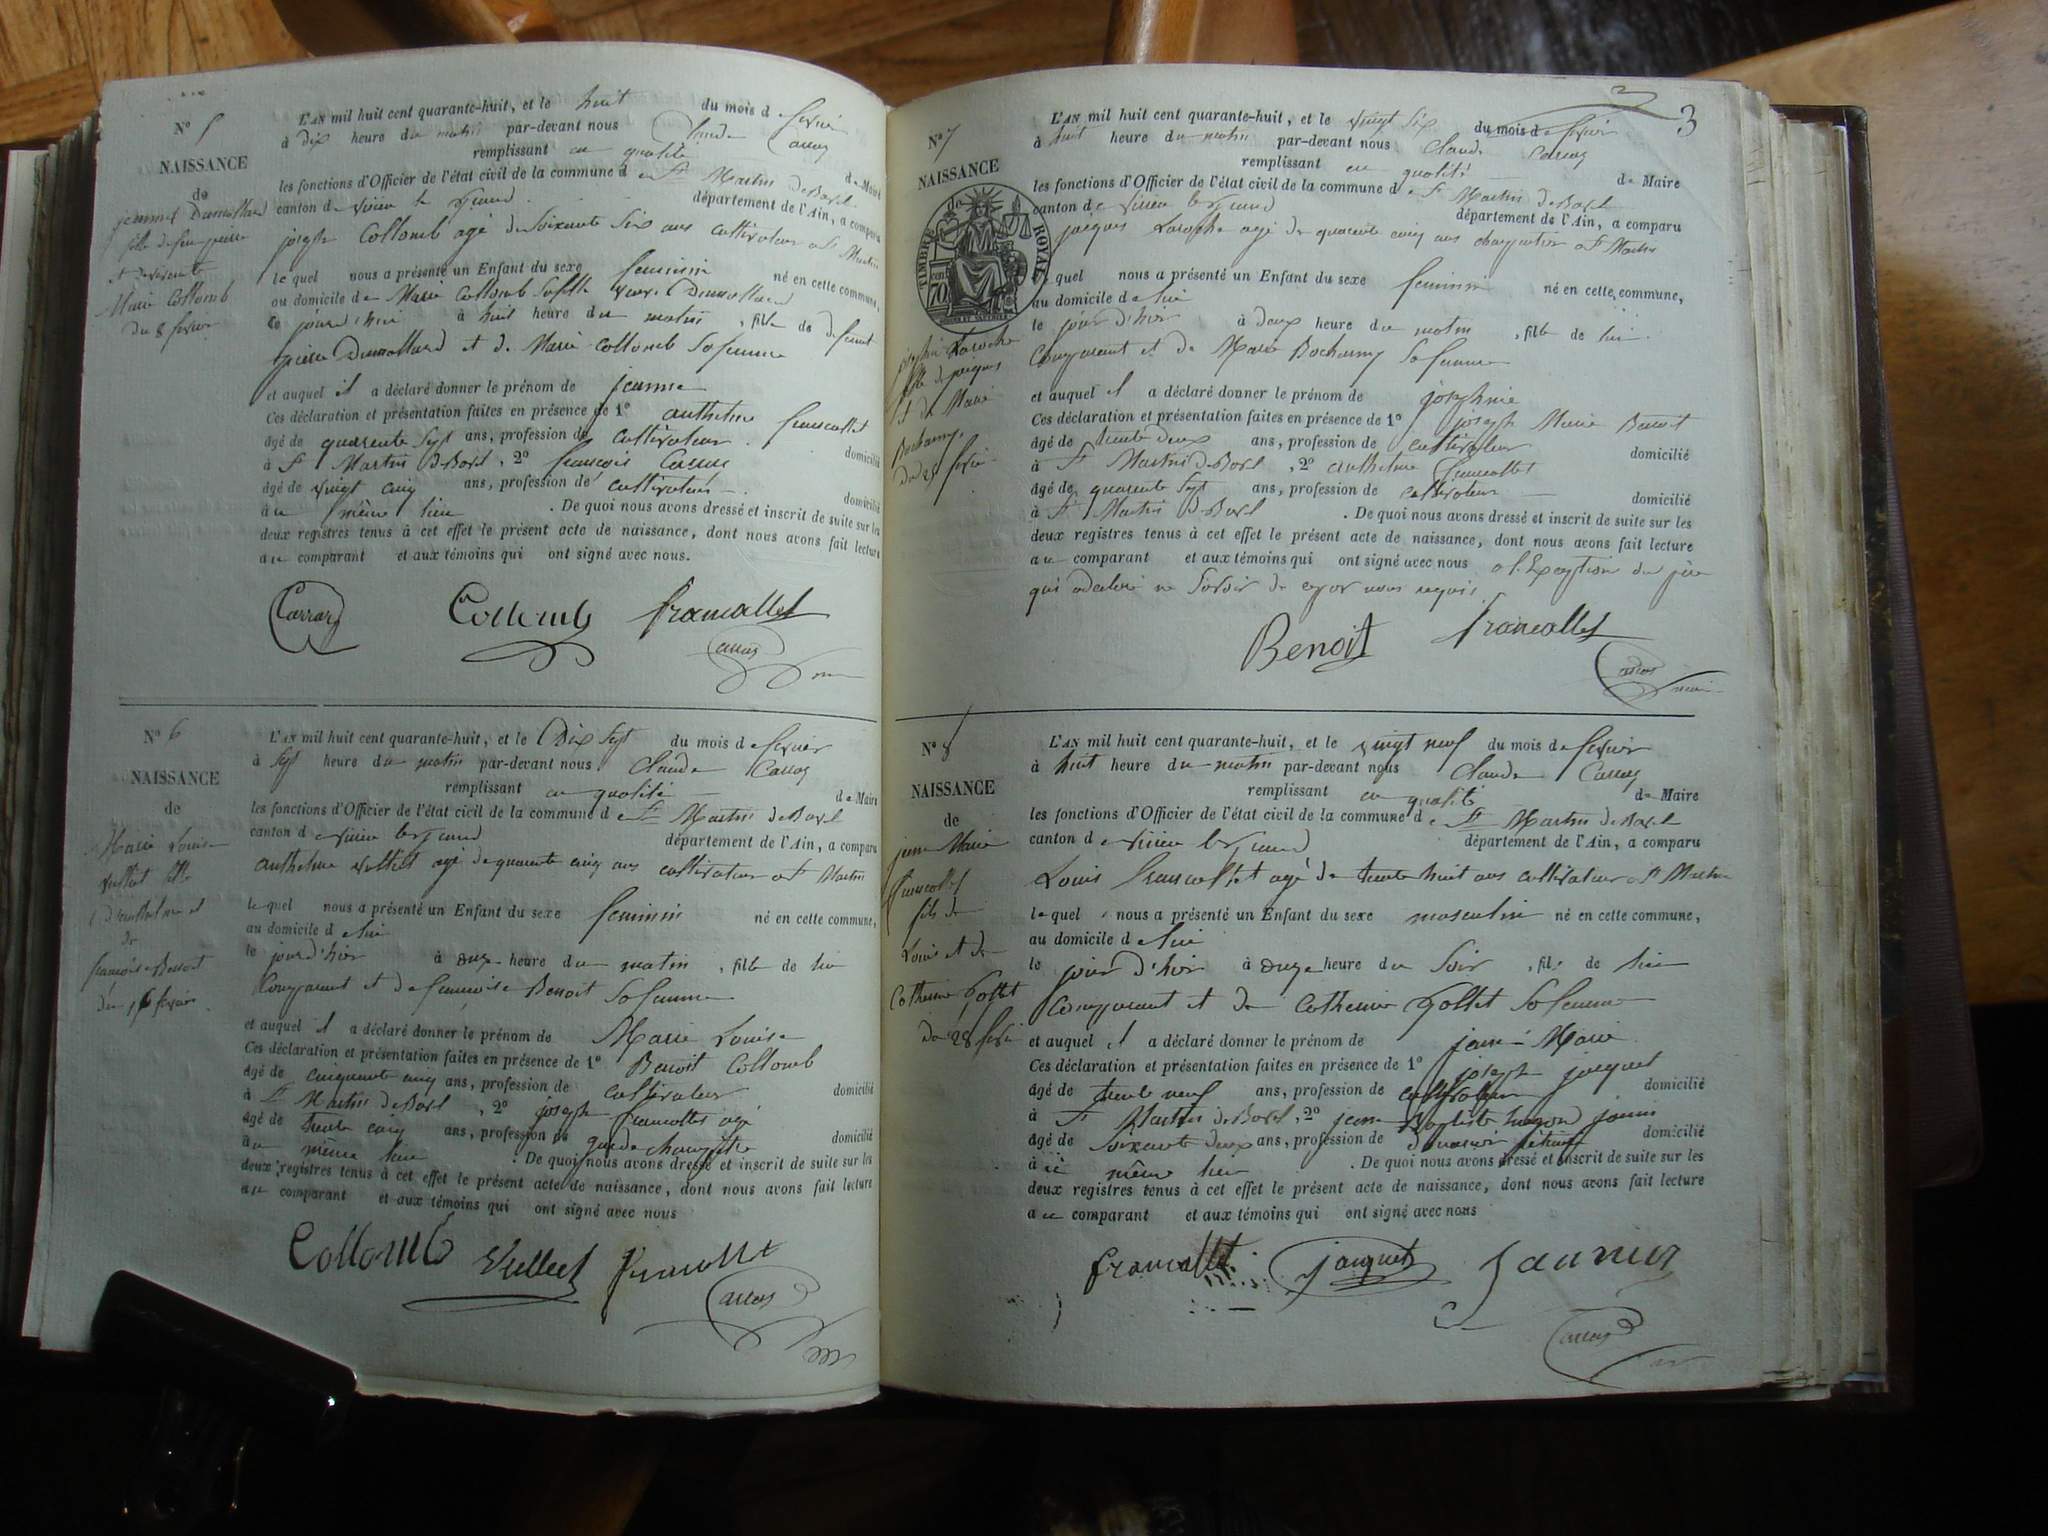 Nº 5
NAISSANCE
de
jeanne Dumollard
fille de feu pierre
et
Marie Collomb
du 8 fevrier
L'AN mil huit cent quarante-huit, et le huit du mois de fevrier
à dix heure du matin par-devant nous Claude Carraz
remplissant en qualité de Maire
les fonctions d'Officier de l'état civil de la commune de St Martin de Bavel
canton de virieu le grand département de l'Ain, a comparu
joseph Collomb agé de soixante six ans cultivateur a St Martin
le quel nous a présenté un Enfant du sexe feminin né en cette commune,
au domicile de Marie Collomb sa fille veuve Dumollard
le jourd'hui à huit heure du matin, fille de defunt
pierre Dumollard et de Marie Collomb sa femme
et auquel il a déclaré donner le prénom de jeanne
Ces déclaration et présentation faites en présence de 1º anthelme francallet
âgé de quarante sept ans, profession de cultivateur domicilié
à St Martin de Bavel, 2º françois Carraz
âgé de vingt cinq ans, profession de cultivateur domicilié
au même lieu. De quoi nous avons dressé et inscrit de suite sur les
deux registres tenus à cet effet le présent acte de naissance, dont nous avons fait lecture
au comparant et aux témoins qui ont signé avec nous.
Carraz Collomb francallet
Carraz
Nº 6
NAISSANCE
de
Marie Louise
Vulliet fille
d'anthelme et
de
françoise Benoit
du 16 fevrier
L'AN mil huit cent quarante-huit, et le Dix sept du mois de fevrier
à sept heure du matin par-devant nous Claude Carraz
remplissant en qualité de Maire
les fonctions d'Officier de l'état civil de la commune de St Martin de Bavel
canton de virieu le grand département de l'Ain, a comparu
anthelme vulliet agé de quarante cinq ans cultivateur a St Martin
le quel nous a présenté un Enfant du sexe feminin né en cette commune,
au domicile de lui
le jour d'hier à onze heure du matin, fille de lui
Comparant et de françoise Benoit sa femme
et auquel il a déclaré donner le prénom de Marie Louise
Ces déclaration et présentation faites en présence de 1º Benoit Collomb
âgé de cinquante cinq ans, profession de cultivateur domicilié
à St Martin de Bavel, 2º joseph francallet agé
âgé de trente cinq ans, profession de garde champêtre domicilié
au même lieu. De quoi nous avons dressé et inscrit de suite sur les
deux registres tenus à cet effet le présent acte de naissance, dont nous avons fait lecture
au comparant et aux témoins qui ont signé avec nous
Collomb Vulliet francallet
Carraz
3
Nº 7
NAISSANCE
de
TIMBRE ROYAL
70
josephine Laroche
fille de jacques
et de Marie
Bochamy
du 25 fevrier
L'AN mil huit cent quarante-huit, et le vingt six du mois de fevrier
à huit heure du matin par-devant nous Claude Carraz
remplissant en qualité de Maire
les fonctions d'Officier de l'état civil de la commune de St Martin de Bavel
canton de virieu le grand département de l'Ain, a comparu
jacques Laroche agé de quarante cinq ans charpentier a St Martin
le quel nous a présenté un Enfant du sexe feminin né en cette commune,
au domicile de lui
le jour d'hier à deux heure du matin, fille de lui
Comparant et de Marie Bochamy sa femme
et auquel il a déclaré donner le prénom de josephine
Ces déclaration et présentation faites en présence de 1º joseph Marie Benoit
âgé de trente deux ans, profession de cultivateur domicilié
à St Martin de Bavel, 2º anthelme francallet
âgé de quarante sept ans, profession de cultivateur domicilié
à St Martin de Bavel. De quoi nous avons dressé et inscrit de suite sur les
deux registres tenus à cet effet le présent acte de naissance, dont nous avons fait lecture
au comparant et aux témoins qui ont signé avec nous a l'Exception du père
qui a déclaré ne savoir de ce par nous requis
Benoit francallet
Carraz
maire
Nº 8
NAISSANCE
de
jean Marie
francallet
fils de
Louis et de
Catherine Gollet
du 28 fevrier
L'AN mil huit cent quarante-huit, et le vingt neuf du mois de fevrier
à huit heure du matin par-devant nous Claude Carraz
remplissant en qualité de Maire
les fonctions d'Officier de l'état civil de la commune de St Martin de Bavel
canton de virieu le grand département de l'Ain, a comparu
Louis francallet agé de trente huit ans cultivateur a St Martin
le quel nous a présenté un Enfant du sexe masculin né en cette commune,
au domicile de lui
le jour d'hier à onze heure du soir, fils de lui
Comparant et de Catherine Gollet sa femme
et auquel il a déclaré donner le prénom de jean Marie
Ces déclaration et présentation faites en présence de 1º joseph jacquet
âgé de trente neuf ans, profession de cultivateur domicilié
à St Martin de Bavel, 2º jean Baptiste
âgé de soixante deux ans, profession de domicilié
à même lieu. De quoi nous avons dressé et inscrit de suite sur les
deux registres tenus à cet effet le présent acte de naissance, dont nous avons fait lecture
au comparant et aux témoins qui ont signé avec nous
francallet jacquet
Carraz